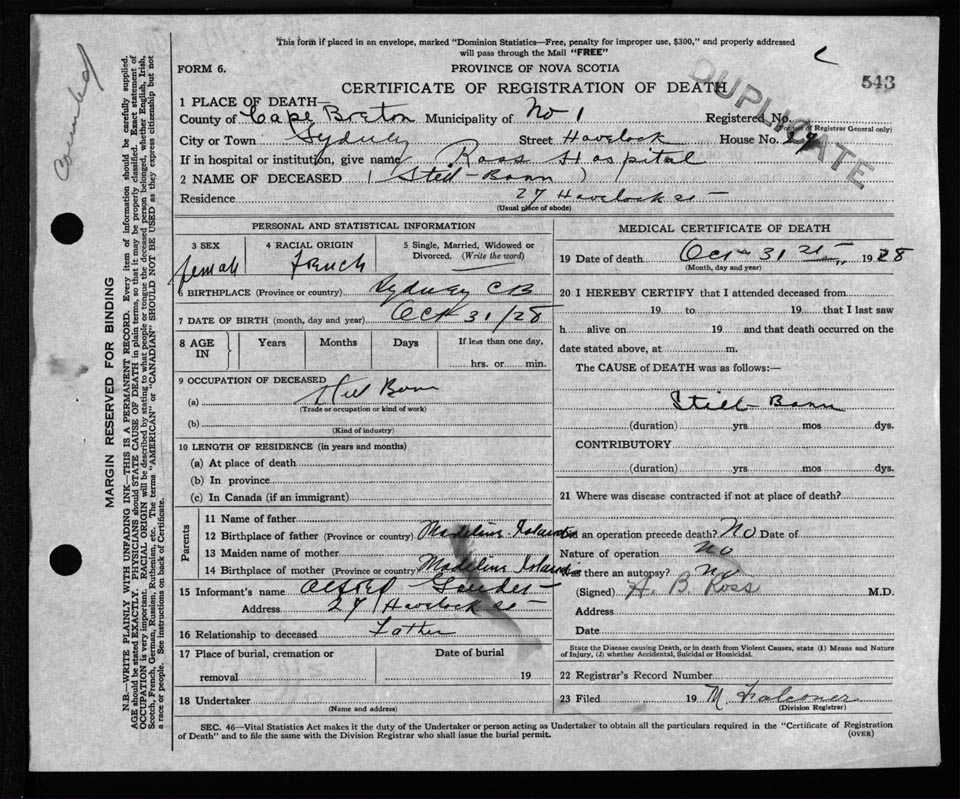 This form if placed in an envelope, marked "Dominion Statistics—Free, penalty for improper use, $300," and properly addressed
will pass through the Mail "FREE"
FORM 6.
PROVINCE OF NOVA SCOTIA
543
CERTIFICATE OF REGISTRATION OF DEATH
DUPLICATE
counted
1 PLACE OF DEATH—
County of Cape Breton Municipality of No 1 Registered No.
(For use of Registrar General only)
City or Town Sydney Street Havelock House No. 27
If in hospital or institution, give name Ross Hospital
2 NAME OF DECEASED (Still-Born)
Residence 27 Havelock St —
(Usual place of abode)
PERSONAL AND STATISTICAL INFORMATION
3 SEX
female
4 RACIAL ORIGIN
French
5 Single, Married, Widowed or
Divorced. (Write the word)
6 BIRTHPLACE (Province or country) Sydney CB
7 DATE OF BIRTH (month, day and year) Oct 31/28
8 AGE IN
Years Months Days If less than one day,
hrs. or min.
9 OCCUPATION OF DECEASED
(a) Still Born
(Trade or occupation or kind of work)
(b)
(Kind of industry)
10 LENGTH OF RESIDENCE (in years and months)
(a) At place of death
(b) In province
(c) In Canada (if an immigrant)
Parents
11 Name of father
12 Birthplace of father (Province or country) Madeline Island
13 Maiden name of mother
14 Birthplace of mother (Province or country) Madeline Island
15 Informant's name Alfred
Address 27 Havelock St —
16 Relationship to deceased Father
17 Place of burial, cremation or Date of burial
removal 19
18 Undertaker
(Name and address)
MEDICAL CERTIFICATE OF DEATH
19 Date of death Oct 31 st 1928
(Month, day and year)
20 I HEREBY CERTIFY that I attended deceased from
19 to 19 that I last saw
h alive on 19 and that death occurred on the
date stated above, at m.
The CAUSE of DEATH was as follows:—
Still-Born
(duration) yrs mos dys.
CONTRIBUTORY
(duration) yrs mos dys.
21 Where was disease contracted if not at place of death?
an operation precede death? No Date of
Nature of operation no
there an autopsy? no
(Signed) H. B. Ross M.D.
Address
Date
State the Disease causing Death, or in death from Violent Causes, state (1) Means and Nature
of Injury, (2) whether Accidental, Suicidal or Homicidal.
22 Registrar's Record Number
23 Filed 19 M Falconer
(Division Registrar)
SEC. 46—Vital Statistics Act makes it the duty of the Undertaker or person acting as Undertaker to obtain all the particulars required in the "Certificate of Registration
of Death" and to file the same with the Division Registrar who shall issue the burial permit.
(OVER)
MARGIN RESERVED FOR BINDING
N.B.—WRITE PLAINLY WITH UNFADING INK—THIS IS A PERMANENT RECORD. Every item of information should be carefully supplied.
AGE should be stated EXACTLY. PHYSICIANS should STATE CAUSE OF DEATH in plain terms, so that it may be properly classified. Exact statement of
OCCUPATION is very important. RACIAL ORIGIN will be described by stating to what people or tongue the deceased person belonged, whether English, Irish,
Scotch, French, German, Russian, Ruthenian, etc. The terms "AMERICAN" or "CANADIAN" SHOULD NOT BE USED as they express citizenship but not
a race or people. See instructions on back of Certificate.